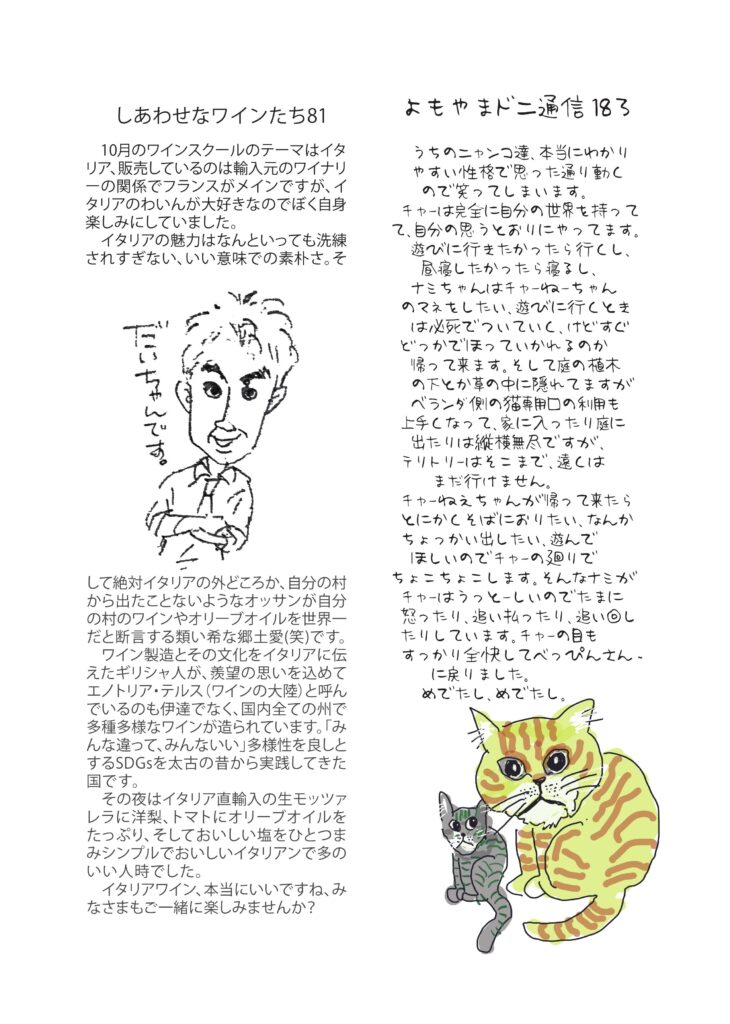 しあわせなワインたち81
10月のワインスクールのテーマはイタ
リア、販売しているのは輸入元のワイナリ
ーの関係でフランスがメインですが、イ
タリアのわいんが大好きなのでぼく自身
楽しみにしていました。
イタリアの魅力はなんといっても洗練
されすぎない、いい意味での素朴さ。そ
だいちゃんです。
して絶対イタリアの外どころか、自分の村
から出たことないようなオッサンが自分
の村のワインやオリーブオイルを世界一
だと断言する類い希な郷土愛(笑)です。
ワイン製造とその文化をイタリアに伝
えたギリシャ人が、羨望の思いを込めて
エノトリア・テルス(ワインの大陸)と呼ん
でいるのも伊達でなく、国内全ての州で
多種多様なワインが造られています。「み
んな違って、みんないい」多様性を良しと
するSDGsを太古の昔から実践してきた
国です。
その夜はイタリア直輸入の生モッツァ
レラに洋梨、トマトにオリーブオイルを
たっぷり、そしておいしい塩をひとつま
みシンプルでおいしいイタリアンで多の
いい人時でした。
イタリアワイン、本当にいいですね、み
なさまもご一緒に楽しみませんか？
よもやまドニ通信 183
うちのニャンコ達、本当にわかり
やすい性格で思った通り動く
ので笑ってしまいます。
チャーは完全に自分の世界を持って
て、自分の思うとおりにやってます。
遊びに行きたかったら行くし、
昼寝したかったら寝るし、
ナミちゃんはチャーねーちゃん
のマネをしたい、遊びに行くとき
は必死でついていく、けどすぐ
どっかでほっていかれるのか
帰って来ます。そして庭の植木
の下とか草の中に隠れてますが
ベランダ側の猫専用口の利用も
上手くなって、家に入ったり庭に
出たりは縦横無尽ですが、
テリトリーはそこまで、遠くは
まだ行けません。
チャーねえちゃんが帰って来たら
とにかくそばにおりたい、なんか
ちょっかい出したい、遊んで
ほしいのでチャーの廻りで
ちょこちょこします。そんなナミが
チャーはうっとーしいのでたまに
怒ったり、追い払ったり、追い回し
たりしています。チャーの目も
すっかり全快してべっぴんさん-
に戻りました。
めでたし、めでたし。